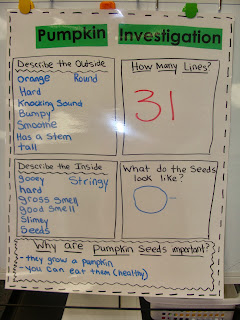 Pumpkin Investigation
Describe the Outside
orange Round
Hard
Knocking Sound
Bumpy
Smoothe
Has a stem
tall
How Many Lines?
31
Describe the Inside
gooey Stringy
hard
gross smell
good smell
Slimey
Seeds
What do the Seeds
look like?
Why are Pumpkin Seeds important?
- they grow a pumpkin
- you can eat them (healthy)